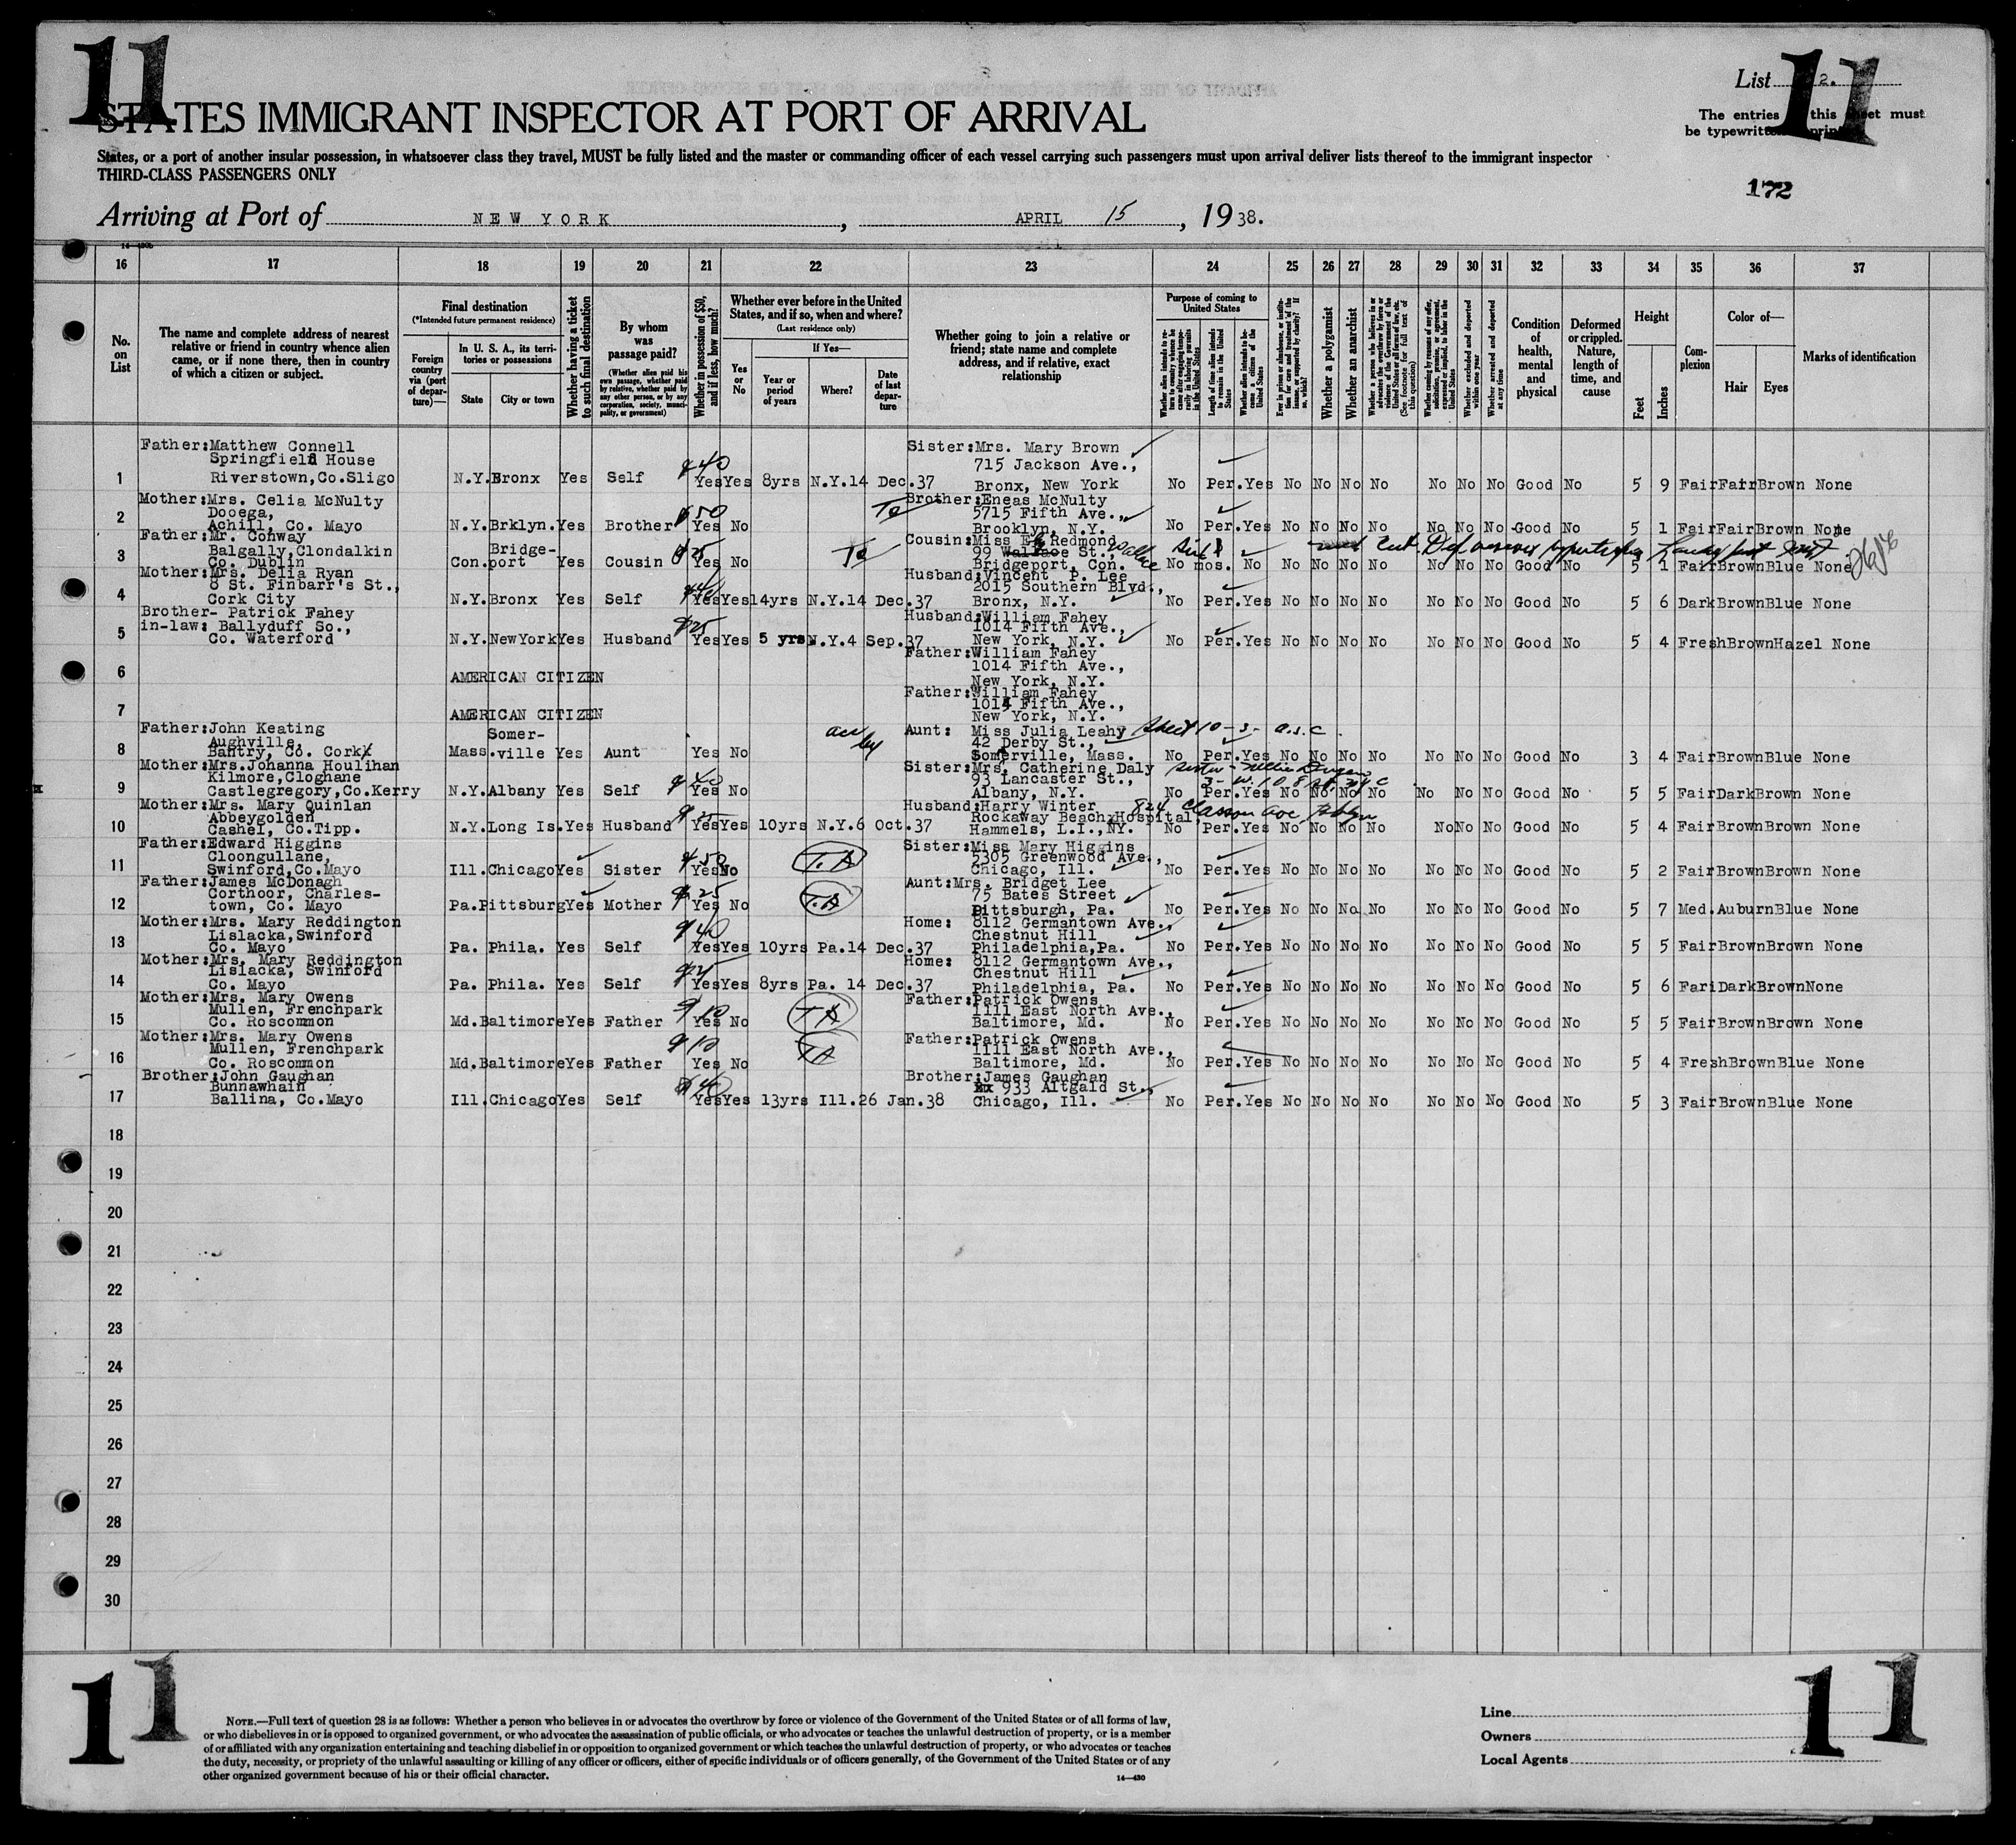 11
11
List 2.
The entries this sheet must
be typewritten print
STATES IMMIGRANT INSPECTOR AT PORT OF ARRIVAL
States, or a port of another insular possession, in whatsoever class they travel, MUST be fully listed and the master or commanding officer of each vessel carrying such passengers must upon arrival deliver lists thereof to the immigrant inspector
THIRD-CLASS PASSENGERS ONLY
172
Arriving at Port of NEW YORK, APRIL 15, 1938.
16 17 18 19 20 21 22 23 24 25 26 27 28 29 30 31 32 33 34 35 36 37
No. on List
The name and complete address of nearest relative or friend in country whence alien came, or if none there, then in country of which a citizen or subject.
Final destination
(*Intended future permanent residence)
Foreign country via (port of departure)—
In U. S. A., its territories or possessions
State
City or town
Whether having a ticket to such final destination
By whom was passage paid?
(Whether alien paid his own passage, whether paid by relative, whether paid by any other person, or by any corporation, society, municipality, or government)
Whether in possession of $50, and if less, how much?
Whether ever before in the United States, and if so, when and where?
(Last residence only)
Yes or No
If Yes—
Year or period of years
Where?
Date of last departure
Whether going to join a relative or friend; state name and complete address, and if relative, exact relationship
Purpose of coming to United States
Whether alien intends to return to country whence he came after engaging temporarily in laboring pursuits in the United States
Length of time alien intends to remain in the United States
Whether alien intends to become a citizen of the United States
Ever in prison or almshouse, or institution for care and treatment of the insane, or supported by charity? If so, which?
Whether a polygamist
Whether an anarchist
Whether a person who believes in or advocates the overthrow by force or violence of the Government of the United States or all forms of law, etc. (See footnote for full text of this question)
Whether coming by reason of any offer, solicitation, promise, or agreement, expressed or implied, to labor in the United States
Whether excluded and deported within one year
Whether arrested and deported at any time
Condition of health, mental and physical
Deformed or crippled. Nature, length of time, and cause
Height
Feet
Inches
Complexion
Color of—
Hair
Eyes
Marks of identification
1 Father:Matthew Connell
Springfield House
Riverstown,Co.Sligo N.Y. Bronx Yes Self $40 Yes Yes 8yrs N.Y. 14 Dec.37 Sister:Mrs. Mary Brown
715 Jackson Ave.,
Bronx, New York No Per. Yes No No No No No No No Good No 5 9 Fair Fair Brown None
2 Mother:Mrs. Celia McNulty
Dooega,
Achill, Co. Mayo N.Y. Brklyn. Yes Brother $50 Yes No Brother:Eneas McNulty
5715 Fifth Ave.,
Brooklyn, N.Y. No Per. Yes No No No No No No No Good No 5 1 Fair Fair Brown None
3 Father:Mr. Conway
Balgally,Clondalkin
Co. Dublin Con. Bridge-
port Yes Cousin $25 Yes No Cousin:Miss Redmond
99 Wallace St.,
Bridgeport, Con. No mos. No No No No No No No No Good No 5 1 Fair Brown Blue None
4 Mother:Mrs. Delia Ryan
8 St. Finbarr's St.,
Cork City N.Y. Bronx Yes Self $40 Yes Yes 14yrs N.Y. 14 Dec.37 Husband:Vincent P. Lee
2015 Southern Blvd.,
Bronx, N.Y. No Per. Yes No No No No No No No Good No 5 6 Dark Brown Blue None
5 Brother- Patrick Fahey
in-law: Ballyduff So.,
Co. Waterford N.Y. NewYork Yes Husband $25 Yes Yes 5 yrs N.Y. 4 Sep.37 Husband:William Fahey
1014 Fifth Ave.,
New York, N.Y. No Per. Yes No No No No No No No Good No 5 4 Fresh Brown Hazel None
6 AMERICAN CITIZEN Father:William Fahey
1014 Fifth Ave.,
New York, N.Y.
7 AMERICAN CITIZEN Father:William Fahey
1014 Fifth Ave.,
New York, N.Y.
8 Father:John Keating
Aughville,
Bantry, Co. Cork Mass. Somer-
ville Yes Aunt Yes No Aunt: Miss Julia Leahy
42 Derby St.,
Somerville, Mass. No Per. Yes No No No No No No No Good No 3 4 Fair Brown Blue None
9 Mother:Mrs.Johanna Houlihan
Kilmore,Cloghane
Castlegregory,Co.Kerry N.Y. Albany Yes Self $40 Yes No Sister:Mrs. Catherine Daly
93 Lancaster St.,
Albany, N.Y. No Per. Yes No No No No No No No Good No 5 5 Fair Dark Brown None
10 Mother:Mrs. Mary Quinlan
Abbeygolden
Cashel, Co.Tipp. N.Y. Long Is. Yes Husband $25 Yes Yes 10yrs N.Y. 6 Oct.37 Husband:Harry Winter
Rockaway Beach Hospital,
Hammels, L.I.,NY. 824 Classon Ave. No Per. Yes No No No No No No No Good No 5 4 Fair Brown Brown None
11 Father:Edward Higgins
Cloongullane,
Swinford,Co.Mayo Ill. Chicago Yes Sister $50 Yes No T.A Sister:Miss Mary Higgins
5305 Greenwood Ave.,
Chicago, Ill. No Per. Yes No No No No No No No Good No 5 2 Fair Brown Brown None
12 Father:James McDonagh
Corthoor, Charles-
town, Co. Mayo Pa. Pittsburg Yes Mother $25 Yes No T.A Aunt:Mrs. Bridget Lee
75 Bates Street
Pittsburgh, Pa. No Per. Yes No No No No No No No Good No 5 7 Med. Auburn Blue None
13 Mother:Mrs. Mary Reddington
Lislacka,Swinford
Co. Mayo Pa. Phila. Yes Self $40 Yes Yes 10yrs Pa. 14 Dec.37 Home: 8112 Germantown Ave.,
Chestnut Hill
Philadelphia,Pa. No Per. Yes No No No No No No No Good No 5 5 Fair Brown Brown None
14 Mother:Mrs. Mary Reddington
Lislacka, Swinford
Co. Mayo Pa. Phila. Yes Self $25 Yes Yes 8yrs Pa. 14 Dec.37 Home: 8112 Germantown Ave.,
Chestnut Hill
Philadelphia, Pa. No Per. Yes No No No No No No No Good No 5 6 Fari Dark Brown None
15 Mother:Mrs. Mary Owens
Mullen, Frenchpark
Co. Roscommon Md. Baltimore Yes Father $10 Yes No T A Father:Patrick Owens
1111 East North Ave.,
Baltimore, Md. No Per. Yes No No No No No No No Good No 5 5 Fair Brown Brown None
16 Mother:Mrs. Mary Owens
Mullen, Frenchpark
Co. Roscommon Md. Baltimore Yes Father $10 Yes No TA Father:Patrick Owens
1111 East North Ave.,
Baltimore, Md. No Per. Yes No No No No No No No Good No 5 4 Fresh Brown Blue None
17 Brother:John Gaughan
Bunnawhain
Ballina, Co.Mayo Ill. Chicago Yes Self $40 Yes Yes 13yrs Ill. 26 Jan.38 Brother:James Gaughan
933 Altgald St.,
Chicago, Ill. No Per. Yes No No No No No No No Good No 5 3 Fair Brown Blue None
18
19
20
21
22
23
24
25
26
27
28
29
30
11
11
NOTE.—Full text of question 28 is as follows: Whether a person who believes in or advocates the overthrow by force or violence of the Government of the United States or of all forms of law,
or who disbelieves in or is opposed to organized government, or who advocates the assassination of public officials, or who advocates or teaches the unlawful destruction of property, or is a member
of or affiliated with any organization entertaining and teaching disbelief in or opposition to organized government or which teaches the unlawful destruction of property, or who advocates or teaches
the duty, necessity, or propriety of the unlawful assaulting or killing of any officer or officers, either of specific individuals or of officers generally, of the Government of the United States or of any
other organized government because of his or their official character.
14—430
Line
Owners
Local Agents